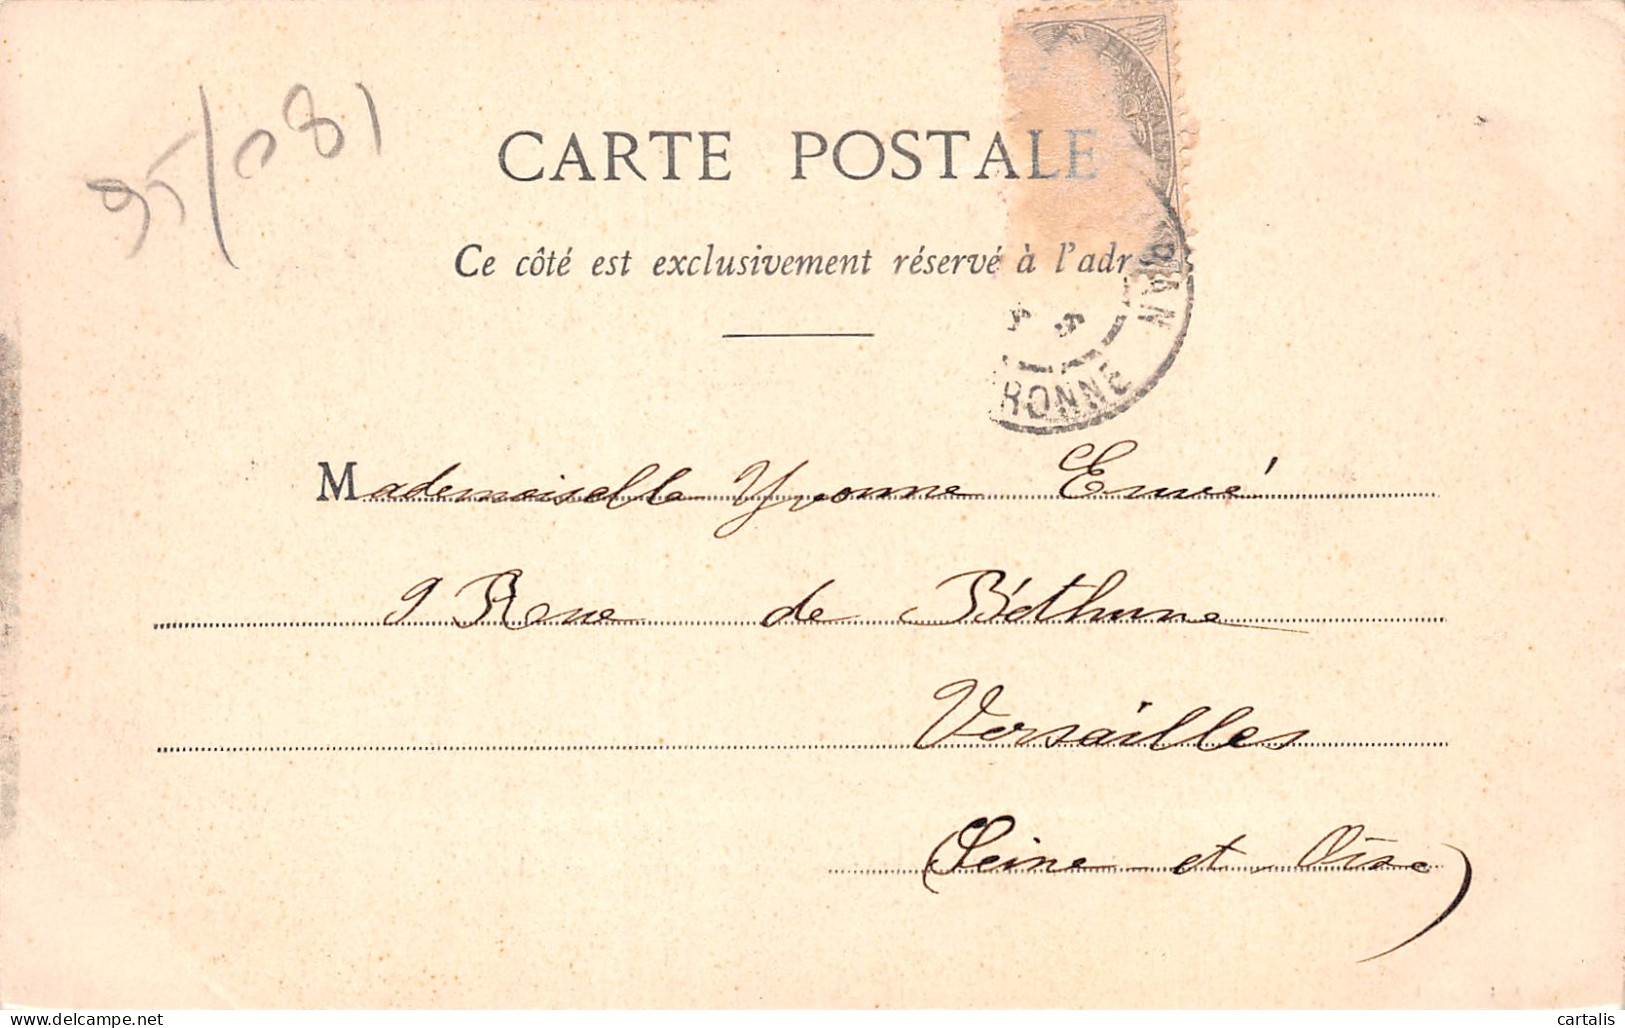 95/081
CARTE POSTALE
Ce côté est exclusivement réservé à l'adr
RONNE
Mademoiselle Yvonne
9 Rue de Béthune
Versailles
(Seine et Oise)
delcampe.net
cartalis